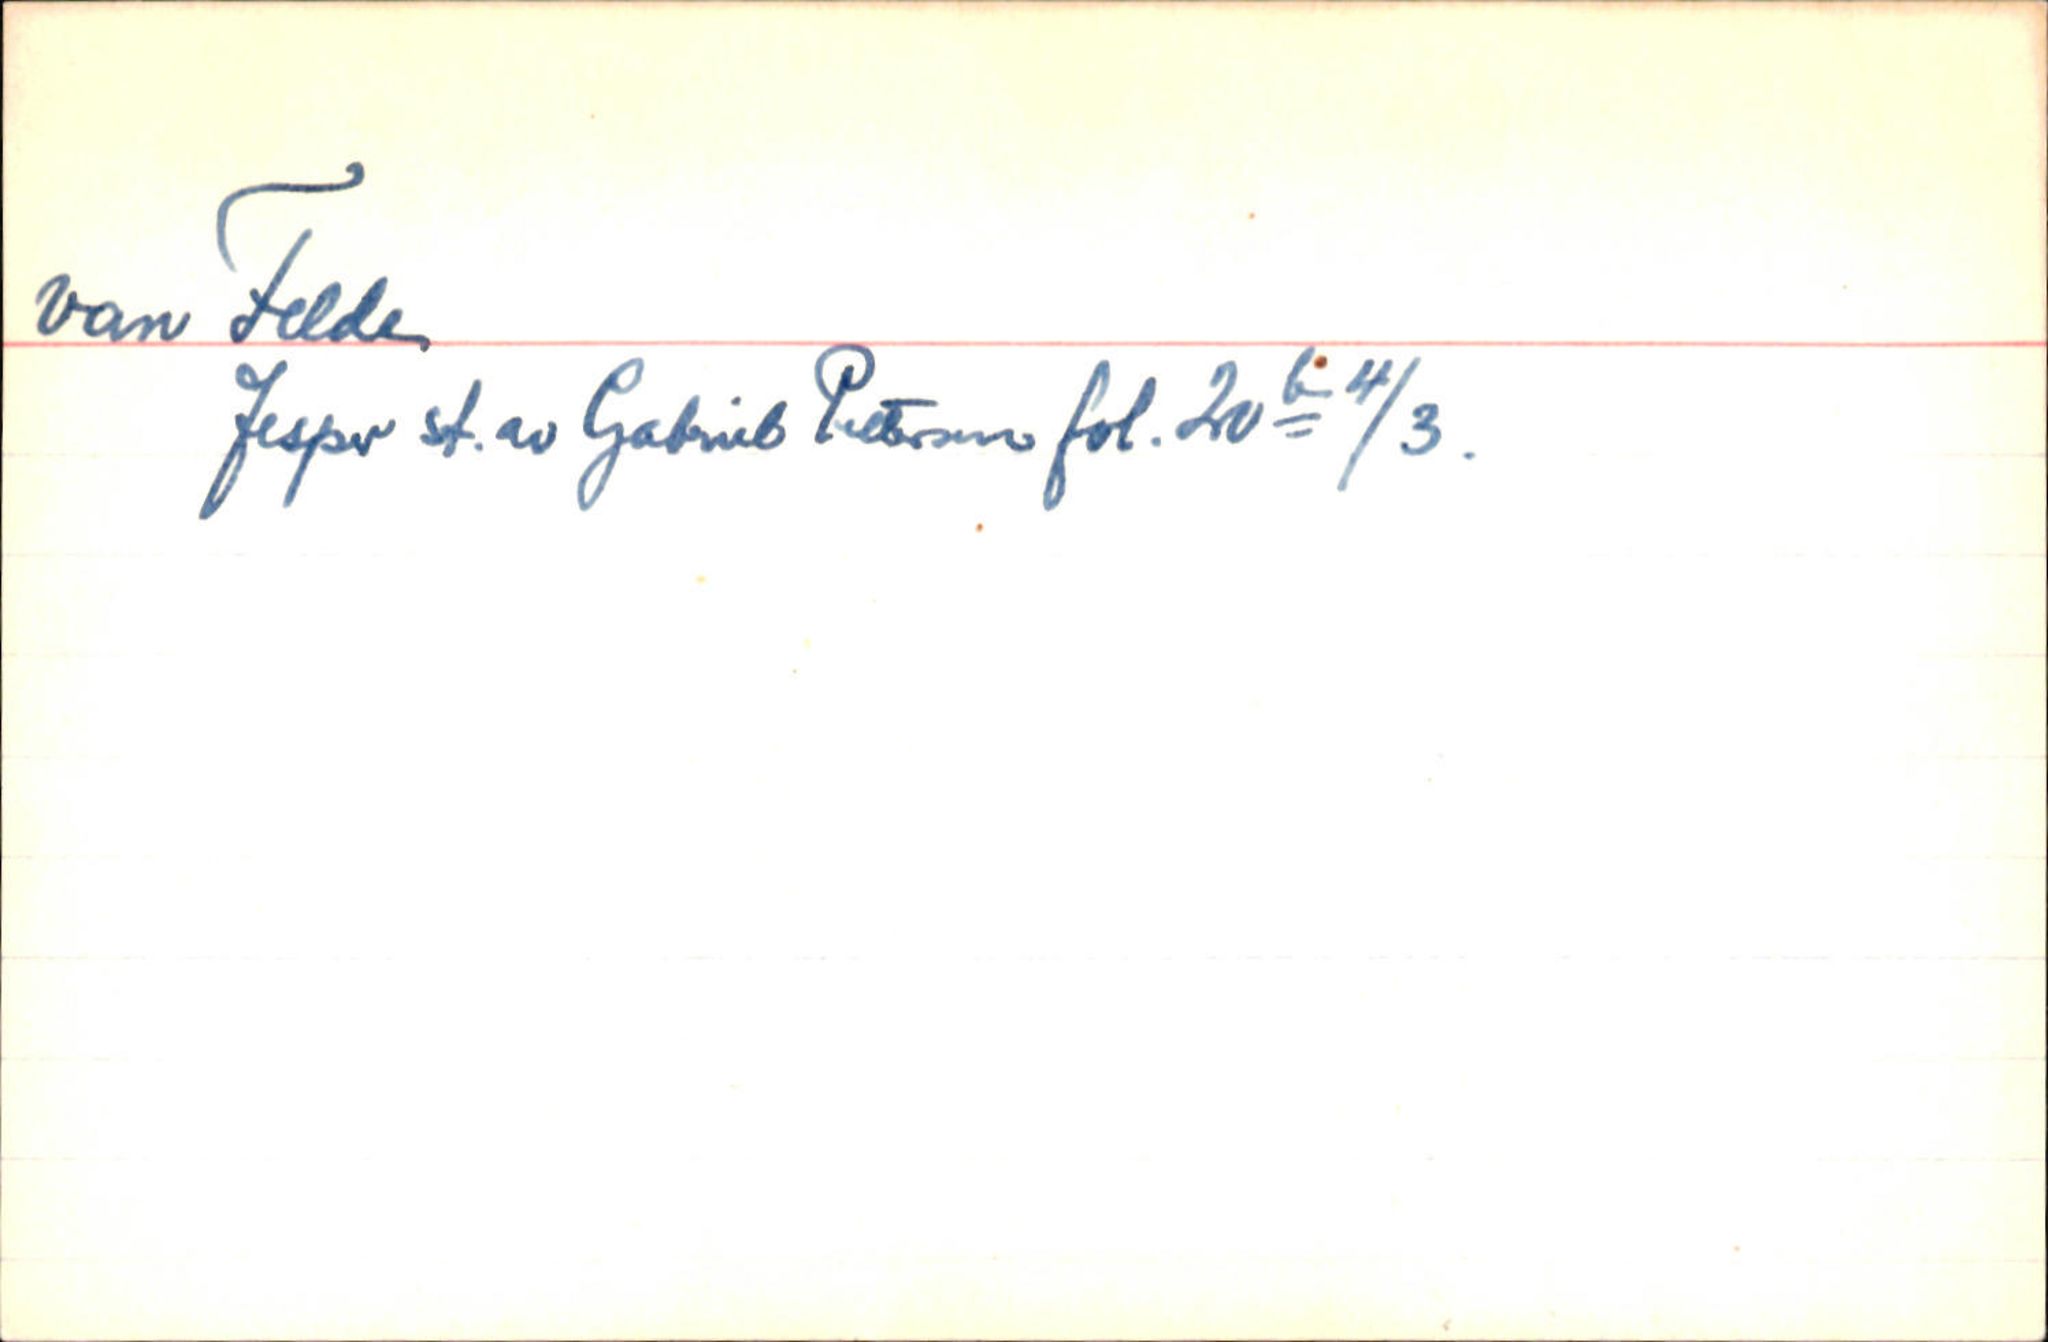 van Felde,
Jesper st. av Gabriel Petersen fol. 20 b 4/3.